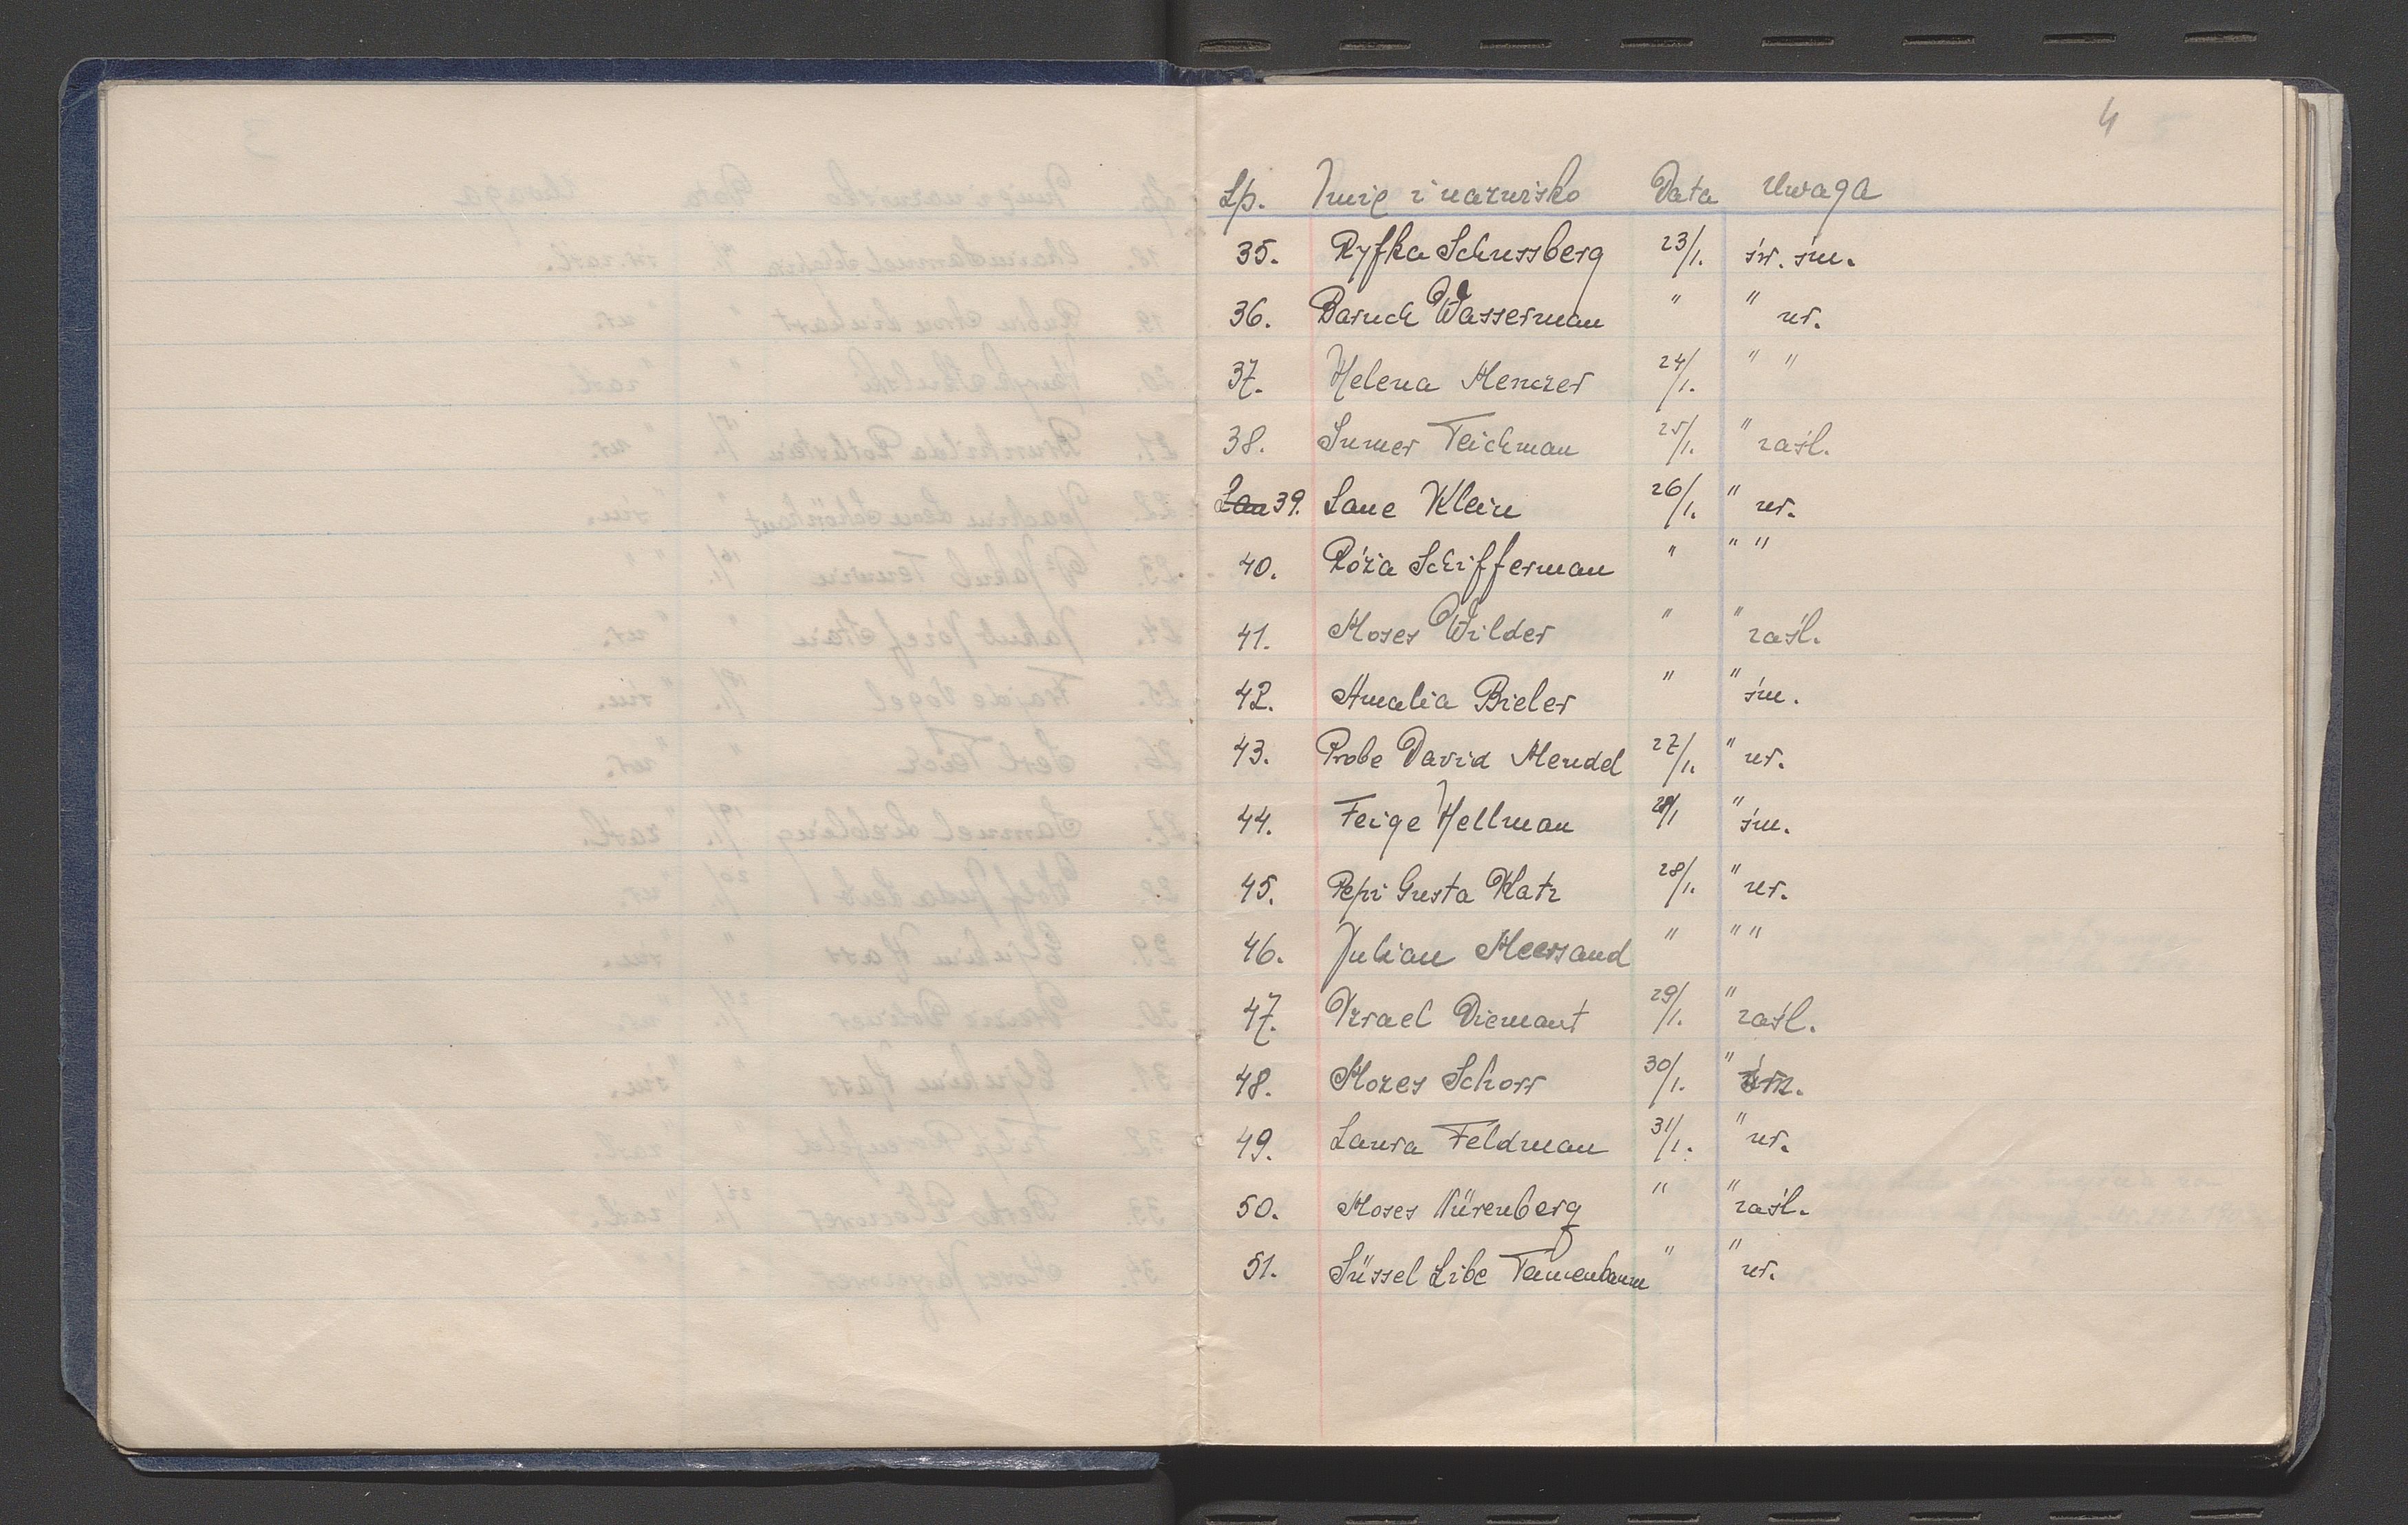 4
Lp. Imię i nazwisko Data Uwaga
35. Ryfka Schussberg 23/1. św. śm.
36. Baruch Wasserman " " ur.
37. Helena Menczer 24/1. " "
38. Sumer Teichman 25/1. " zaśl.
Lau 39. Laue Klein 26/1. " ur.
40. Róża Schifferman " " "
41. Moses Wilder " " zaśl.
42. Amalia Bieler " " śm.
43. Probe David Mendel 27/1. " ur.
44. Feige Hellman 28/1 " śm.
45. Pepi Gusta Katz 28/1. " ur.
46. Julian Meersand " " "
47. Izrael Diemant 29/1. " zaśl.
48. Mozes Schorr 30/1. " śm.
49. Laura Feldman 31/1. " ur.
50. Moses Nürenberg " " zaśl.
51. Süssel Libe Tannenbaum " " ur.